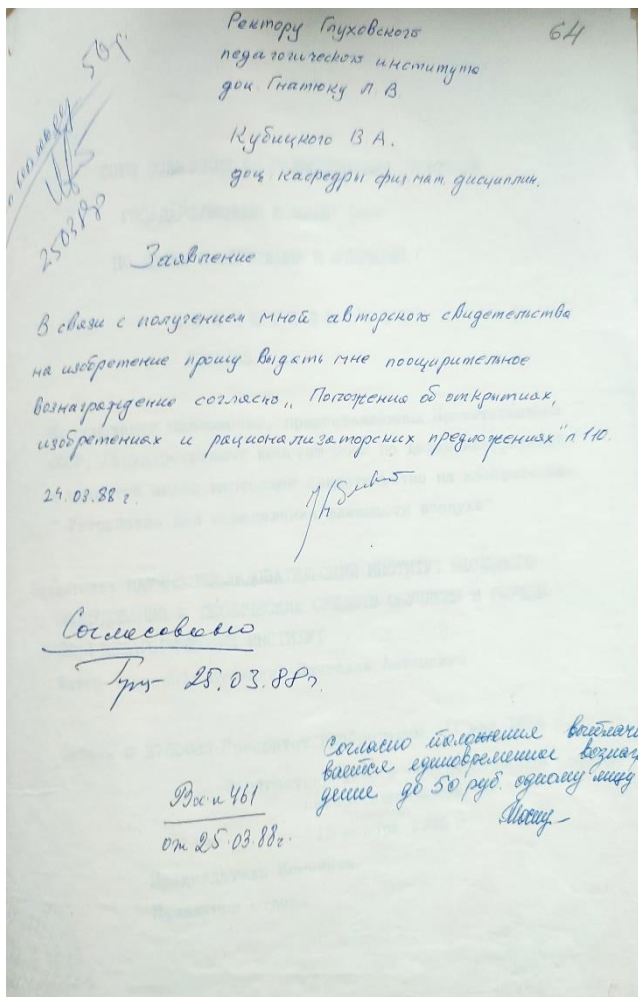 64
Ректору Глуховского
педагогического института
доц. Гнатюку Л В
Кубицкого В А.
доц кафедры физ мат дисциплин.
50 р.
25 03 88
Заявление
В связи с получением мной авторского свидетельства
на изобретение прошу выдать мне поощирительное
вознаграждение согласно „Положения об открытиях,
изобретениях и рационализаторских предложениях" п 110.
24.03.88 г.
Согласовано
25.03.88г.
Согласно положения выплачи
вается единовременное вознаг
дение до 50 руб. одному лицу
Вх. № 461
от 25.03.88г.